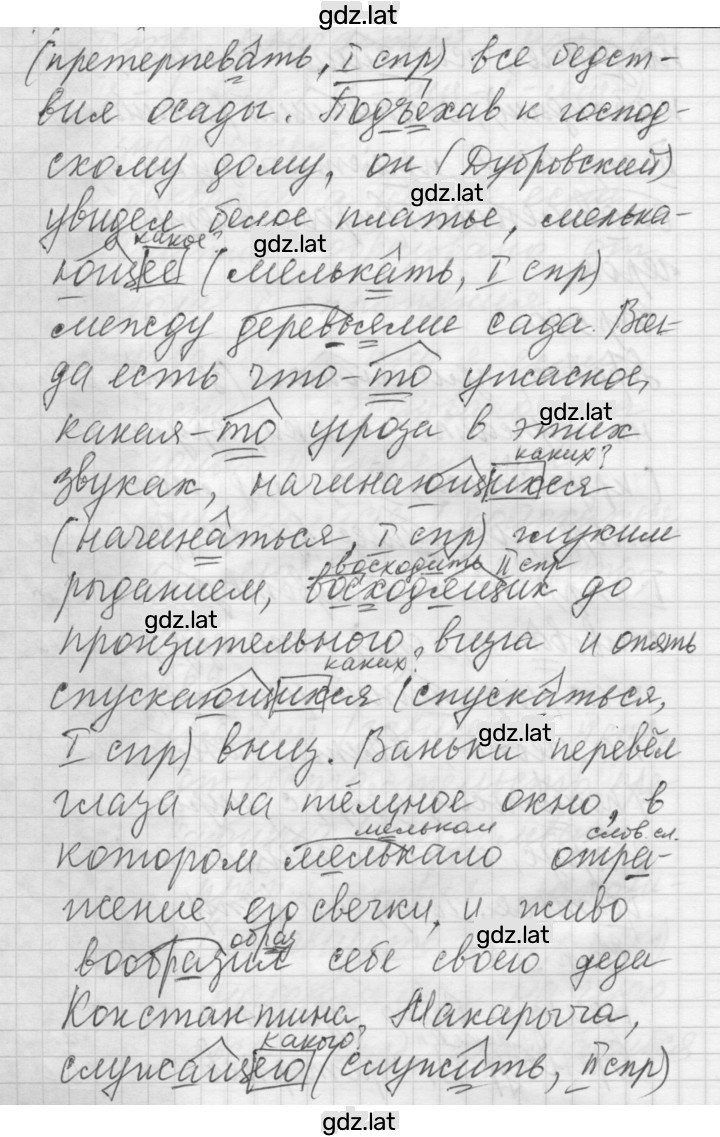 gdz.lat
(претерпевать, I спр) все бедст-
вия осады. Подъехав к господ-
скому дому, он (Дубровский)
gdz.lat
увидел белое платье, мелька-
какое?
gdz.lat
ющее (мелькать, I спр)
между деревьями сада. Всег-
да есть что-то ужасное,
gdz.lat
какая-то угроза в этих
каких?
звуках, начинающихся
(начинаться, I спр) глухим
восходить II спр
рыданием, восходящих до
gdz.lat
пронзительного визга и опять
каких?
спускающихся (спускаться,
gdz.lat
I спр) вниз. Ванька перевёл
глаза на тёмное окно, в
мельком слов.сл.
котором мелькало отра-
жение его свечки, и живо
образ
gdz.lat
вообразил себе своего деда
Константина Макарыча,
какого?
служащего (служить, II спр)
gdz.lat